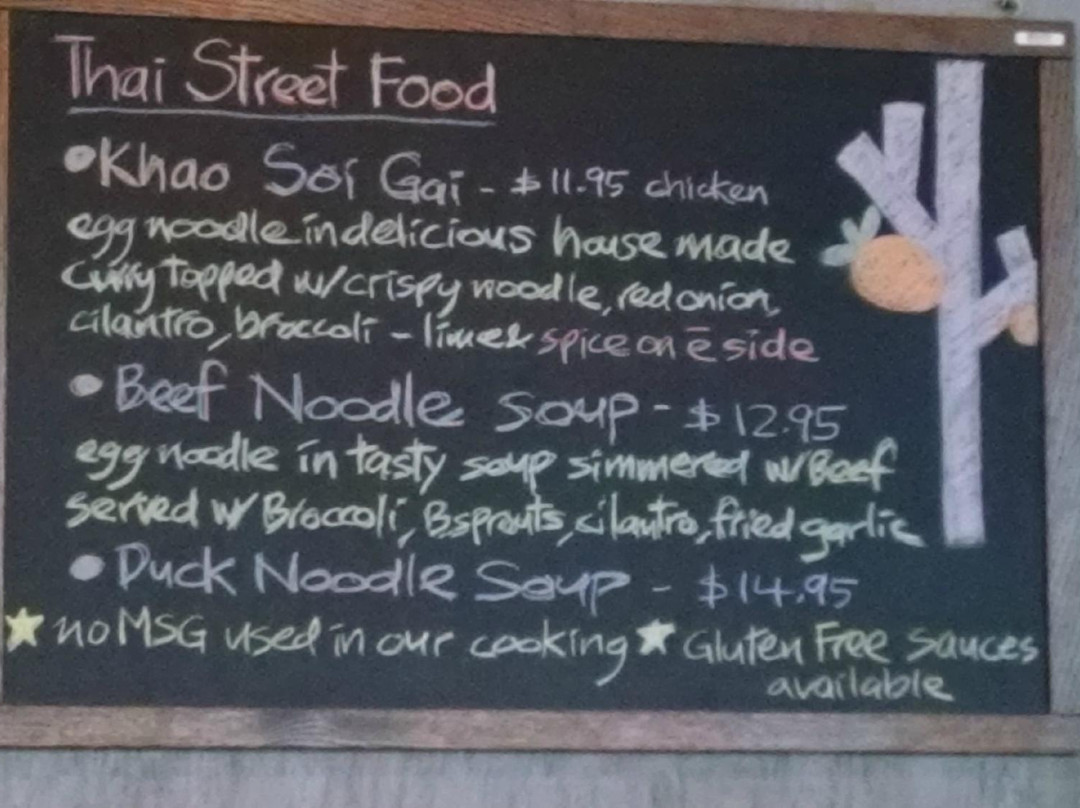 Thai Street Food
•Khao Soi Gai - $11.95 chicken
egg noodle in delicious house made
curry topped w/crispy noodle, red onion,
cilantro, broccoli - lime & spice on ē side
• Beef Noodle Soup - $12.95
egg noodle in tasty soup simmered w/Beef
served w/ Broccoli, Bsprouts, cilantro, fried garlic
• Duck Noodle Soup - $14.95
★ no MSG used in our cooking ★ Gluten Free Sauces
available